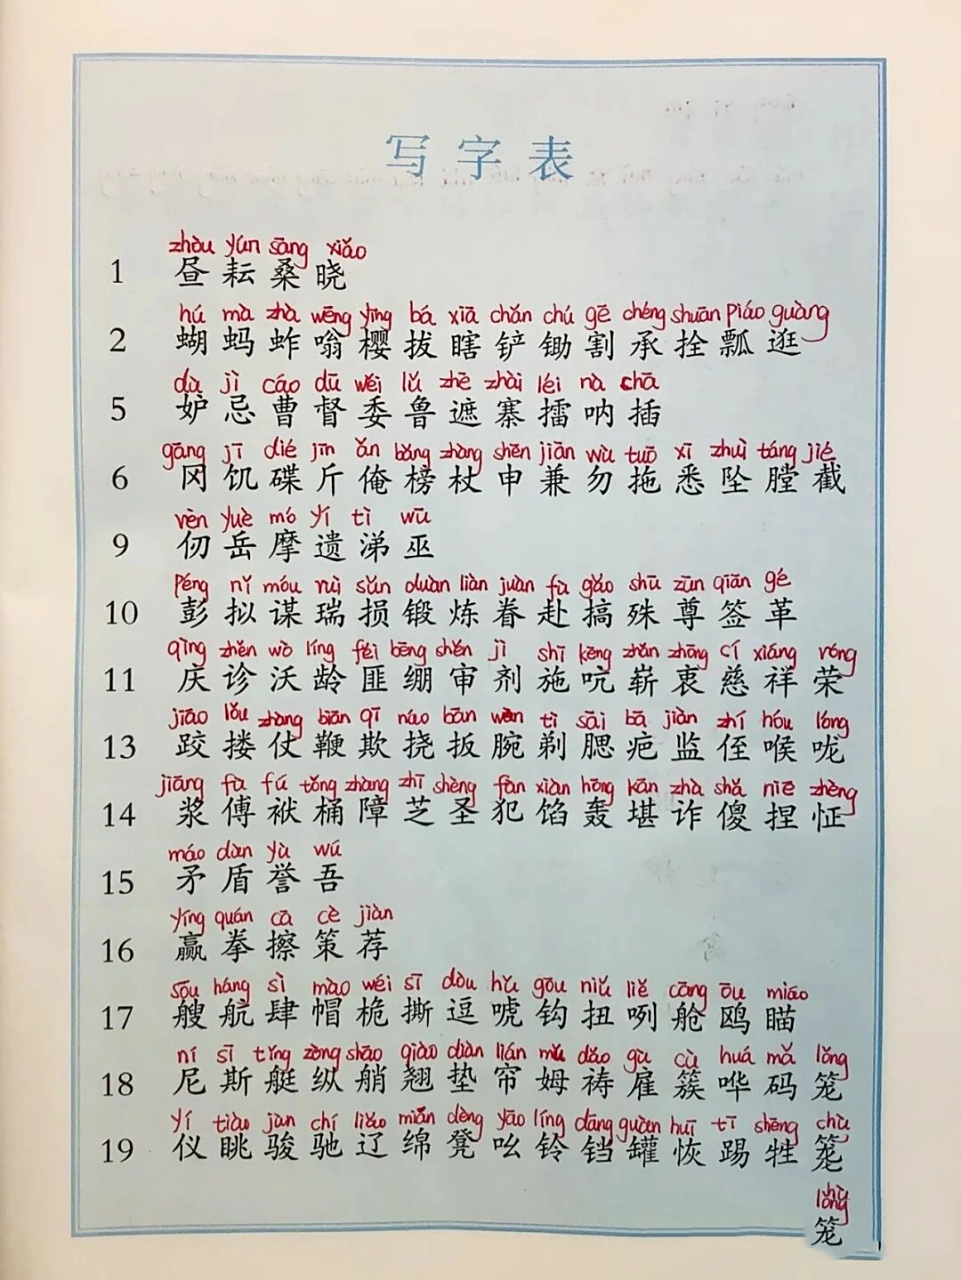 写字表
zhòu yún sāng xiǎo
1 昼 耘 桑 晓
hú mà zhà wēng yīng bá xiā chǎn chú gē chéng shuān piáo guàng
2 蝴 蚂 蚱 嗡 樱 拔 瞎 铲 锄 割 承 拴 瓢 逛
dù jì cáo dū wěi lǔ zhē zhài léi nà chā
5 妒 忌 曹 督 委 鲁 遮 寨 擂 呐 插
gāng jī dié jīn ǎn bǎng zhàng shēn jiān wù tuō xī zhuì táng jié
6 冈 饥 碟 斤 俺 榜 杖 申 兼 勿 拖 悉 坠 膛 截
rèn yuè mó yí tì wū
9 仞 岳 摩 遗 涕 巫
péng nǐ móu ruì sǔn duàn liàn juàn fù gǎo shū zūn qiān gé
10 彭 拟 谋 瑞 损 锻 炼 眷 赴 搞 殊 尊 签 革
qìng zhěn wò líng fěi bēng shěn jì shī kēng zhǎn zhōng cí xiáng róng
11 庆 诊 沃 龄 匪 绷 审 剂 施 吭 崭 衷 慈 祥 荣
jiāo lǒu zhàng biān qī náo bān wàn tì sāi bā jiàn zhí hóu lóng
13 跤 搂 仗 鞭 欺 挠 扳 腕 剃 腮 疤 监 侄 喉 咙
jiāng fù fú tǒng zhàng zhī shèng fàn xiàn hōng kān zhà shǎ niē zhèng
14 浆 傅 袱 桶 障 芝 圣 犯 馅 轰 堪 诈 傻 捏 怔
máo dùn yù wú
15 矛 盾 誉 吾
yíng quán cā cè jiàn
16 赢 拳 擦 策 荐
sōu háng sì mào wéi sī dòu hǔ gōu niǔ liě cāng ōu miáo
17 艘 航 肆 帽 桅 撕 逗 唬 钩 扭 咧 舱 鸥 瞄
ní sī tǐng zòng shāo qiào diàn lián mǔ dǎo gù cù huá mǎ lǒng
18 尼 斯 艇 纵 艄 翘 垫 帘 姆 祷 雇 簇 哗 码 笼
yí tiào jùn chí liáo mián dèng yāo líng dāng guàn huī tī shēng chù
19 仪 眺 骏 驰 辽 绵 凳 吆 铃 铛 罐 恢 踢 牲 笼
lǒng
笼